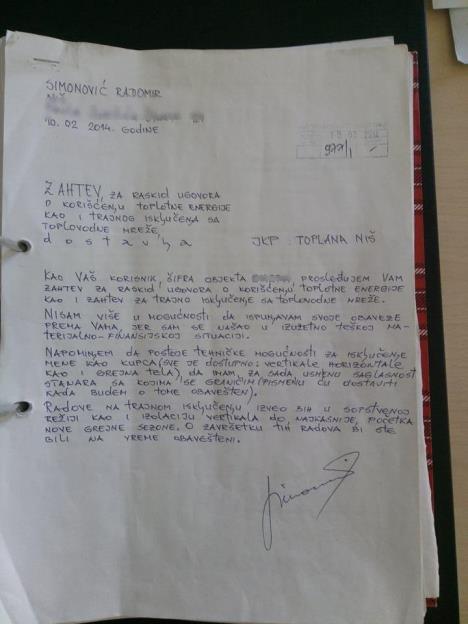 SIMONOVIĆ RADOMIR
NIŠ
10.02 2014. GODINE
977/1
ZAHTEV, ZA RASKID UGOVORA
O KORIŠĆENJU TOPLOTNE ENERGIJE
KAO I TRAJNOG ISKLJUČENJA SA
TOPLOVODNE MREŽE,
dostavlja JKP TOPLANA NIŠ
KAO VAŠ KORISNIK, ŠIFRA OBJEKTA PROSLEĐUJEM VAM
ZAHTEV ZA RASKID UGOVORA O KORIŠĆENJU TOPLOTNE ENERGIJE
KAO I ZAHTEV ZA TRAJNO ISKLJUČENJE SA TOPLOVODNE MREŽE.
NISAM VIŠE U MOGUĆNOSTI DA ISPUNJAVAM SVOJE OBAVEZE
PREMA VAMA, JER SAM SE NAŠAO U IZUZETNO TEŠKOJ MA-
TERIJALNO-FINANSIJSKOJ SITUACIJI.
NAPOMINJEM DA POSTOJE TEHNIČKE MOGUĆNOSTI ZA ISKLJUČENJE
MENE KAO KUPCA (SVE JE DOSTUPNO: VERTIKALE HORIZONTALE
KAO I GREJNA TELA), DA IMAM, ZA SADA, USMENU SAGLASNOST
STANARA SA KOJIMA SE GRANIČIM (PISMENU ĆU DOSTAVITI
KADA BUDEM O TOME OBAVEŠTEN).
RADOVE NA TRAJNOM ISKLJUČENJU IZVEO BIH U SOPSTVENOJ
REŽIJI KAO I IZOLACIJU VERTIKALA DO, NAJKASNIJE, POČETKA
NOVE GREJNE SEZONE. O ZAVRŠETKU TIH RADOVA BI STE
BILI NA VREME OBAVEŠTENI.